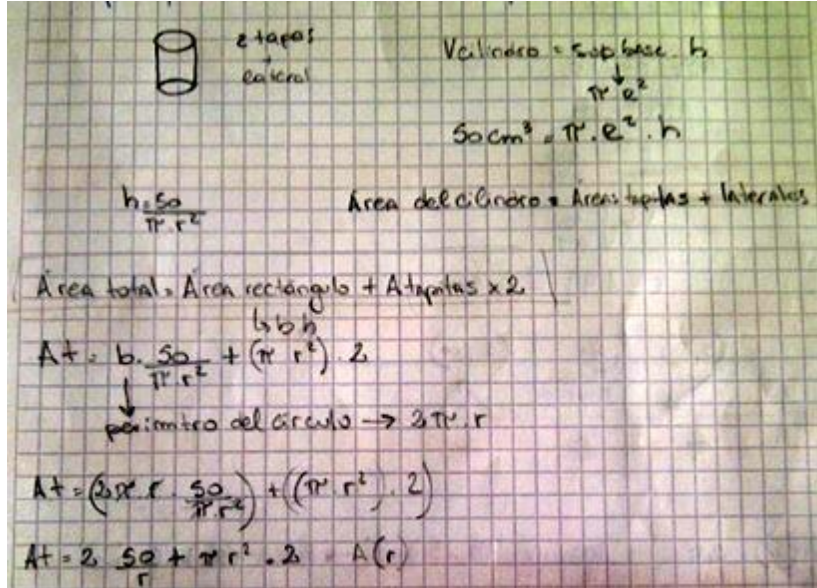 2 tapas
+
lateral
Vcilindro = sup base . h
π r²
50 cm³ = π . r² . h
h = 50 / π . r²
Área del cilindro = Áreas tapitas + laterales
Área total = Área rectángulo + A tapitas x 2
↳ b h
At = b . 50 / π . r² + (π r²) . 2
perimtro del círculo → 2 π . r
At = (2 π . r . 50 / π . r²) + ((π . r²) . 2)
At = 2 50 / r + π r² . 2 = A(r)